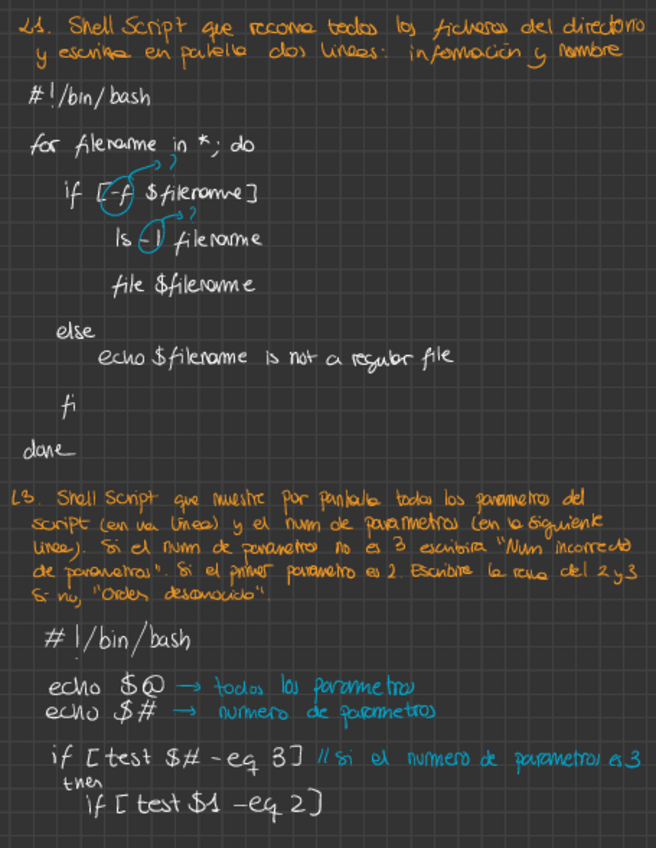 L1. Shell Script que recorra todos los ficheros del directorio
y escriba en pantalla dos lineas: información y nombre
#!/bin/bash
for filename in *; do
?
if [-f $filename]
?
ls -l filename
file $filename
else
echo $filename is not a regular file
fi
done
L3. Shell Script que muestre por pantalla todos los parametros del
script (en una linea) y el num de parametros (en la siguiente
linea). Si el num de parametros no es 3 escribira "Num incorrecto
de parametros". Si el primer parametro es 2. Escribire la del 2 y 3
Si no, "Orden desconocido".
#!/bin/bash
echo $@ → todos los parametros
echo $# → numero de parametros
if [test $# -eq 3] // si el numero de parametros es 3
then
if [test $1 -eq 2]